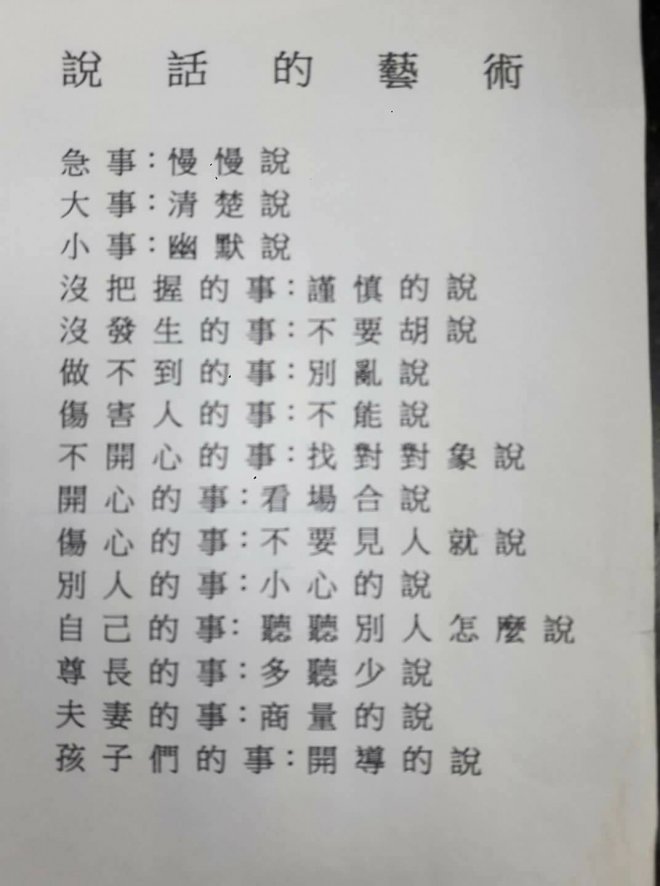 說話的藝術
急事：慢慢說
大事：清楚說
小事：幽默說
沒把握的事：謹慎的說
沒發生的事：不要胡說
做不到的事：別亂說
傷害人的事：不能說
不開心的事：找對對象說
開心的事：看場合說
傷心的事：不要見人就說
別人的事：小心的說
自己的事：聽聽別人怎麼說
尊長的事：多聽少說
夫妻的事：商量的說
孩子們的事：開導的說